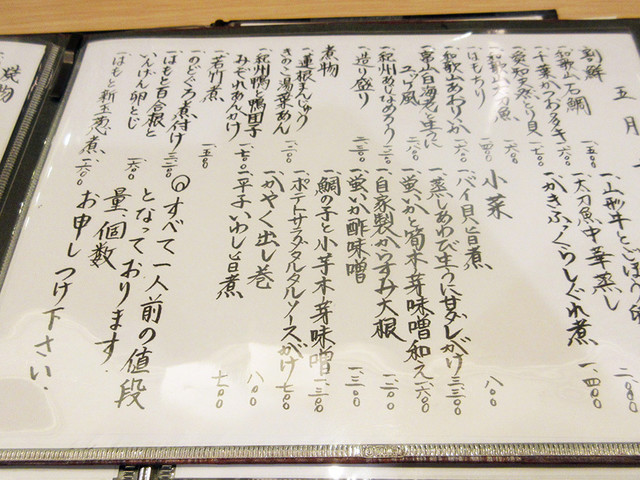 五月
割鮮
一、和歌山石鯛
一、千葉かつおタタキ 一、六〇〇
一、愛知天然とり貝 一、六〇〇
一、和歌山太刀魚
一、はもちり 一、四〇〇
一、和歌山あわび 一、六〇〇
一、紀州
一、造り盛り 二、二〇〇
煮物
一、蓮根まんじゅう
きのこ湯葉あん 一、二〇〇
一、紀州鴨と鴨団子
みぞれあんかけ 一、七〇〇
一、若竹煮 一、五〇〇
一、のどぐろ煮付け 三、二〇〇
一、はもと百合根と
いんげん卵とじ 一、六〇〇
一、はもと新玉葱煮 一、六〇〇
一、太刀魚中華蒸し 二、〇〇〇
一、かきふっくらしぐれ煮 一、四〇〇
小菜
一、バイ貝旨煮 八〇〇
一、蒸しあわび生うに甘ダレがけ 三、三〇〇
一、蛍いかと筍木ノ芽味噌和え 一、六〇〇
一、自家製からすみ大根 一、二〇〇
一、蛍いか酢味噌 一、三〇〇
一、鯛の子と小芋木ノ芽味噌 一、三〇〇
一、ポテトサラダタルタルソースがけ 七〇〇
一、かやく出し巻 八〇〇
一、平子いわし旨煮 七〇〇
◎すべて一人前の値段
となっております。
量、個数
お申しつけ下さい。
焼物